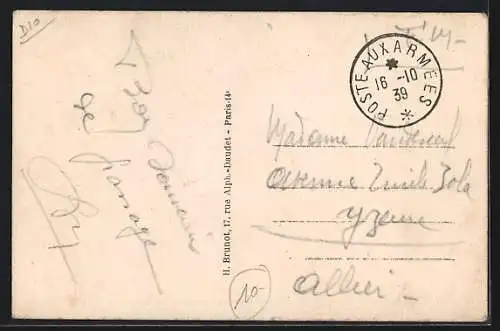 D10
Bon
Souvenir
de
passage
H. Brunot, 17, rue Alph.-Daudet - Paris-14e
F.M.
POSTE AUX ARMÉES
16 -10
39
Madame
avenue Emile Zola
Yzeure
Allier
10-